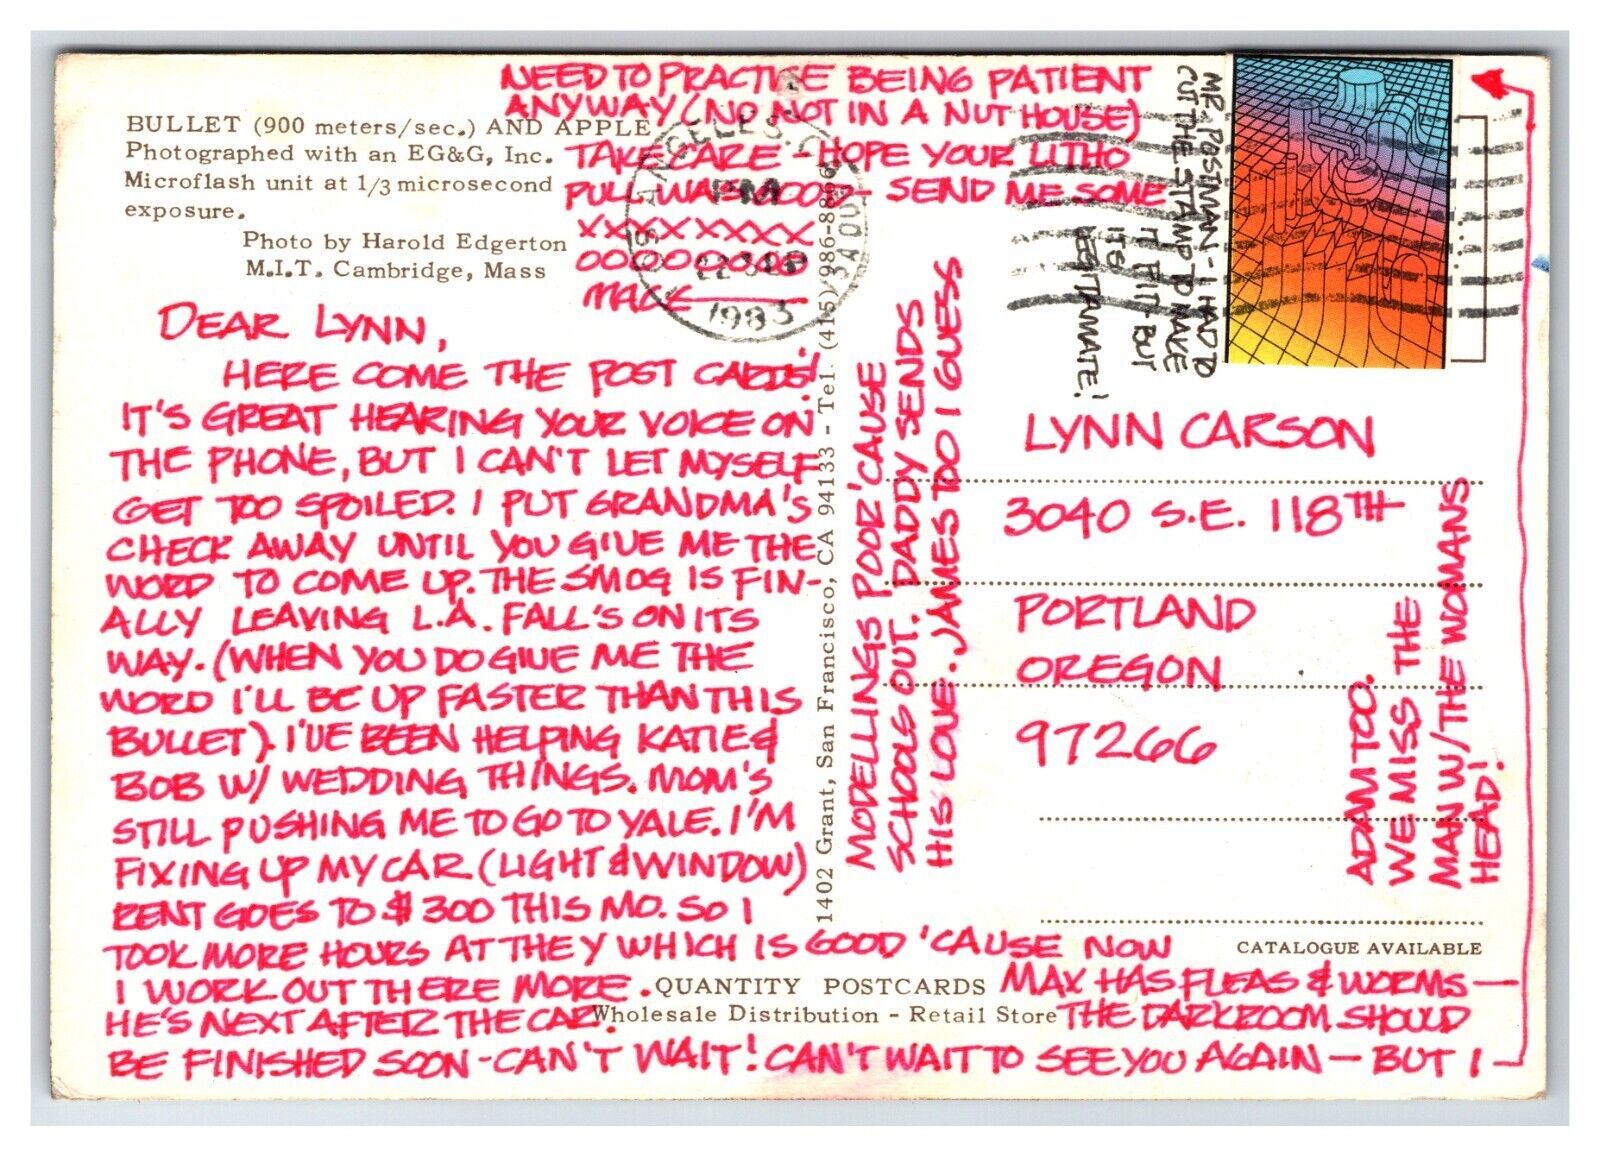 BULLET (900 meters/sec.) AND APPLE
Photographed with an EG&G, Inc.
Microflash unit at 1/3 microsecond
exposure.
Photo by Harold Edgerton
M.I.T. Cambridge, Mass
DEAR LYNN,
HERE COME THE POST CARDS!
IT'S GREAT HEARING YOUR VOICE ON
THE PHONE, BUT I CAN'T LET MYSELF
GET TOO SPOILED. I PUT GRANDMA'S
CHECK AWAY UNTIL YOU GIVE ME THE
WORD TO COME UP. THE SMOG IS FIN-
ALLY LEAVING L.A. FALL'S ON ITS
WAY. (WHEN YOU DO GIVE ME THE
WORD I'LL BE UP FASTER THAN THIS
BULLET). I'VE BEEN HELPING KATIE &
BOB W/ WEDDING THINGS. MOM'S
STILL PUSHING ME TO GO TO YALE. I'M
FIXING UP MY CAR (LIGHT & WINDOW)
RENT GOES TO $300 THIS MO. SO I
TOOK MORE HOURS AT THEY WHICH IS GOOD 'CAUSE NOW
I WORK OUT THERE MORE. MAX HAS FLEAS & WORMS —
HE'S NEXT AFTER THE CAR. THE DARKROOM SHOULD
BE FINISHED SOON - CAN'T WAIT! CAN'T WAIT TO SEE YOU AGAIN — BUT I
NEED TO PRACTISE BEING PATIENT
ANYWAY (NO NOT IN A NUT HOUSE)
TAKE CARE - HOPE YOUR LITHO
PULL WAS GOOD - SEND ME SOME
XXXXXXXX
OOOOOOOO
MODELLINGS POOR 'CAUSE
SCHOOLS OUT. DADDY SENDS
HIS LOVE. JAMES TOO I GUESS
ADAM TOO.
WE MISS THE
MAN W/THE WOMANS
HEAD!
MR. POSTMAN - I HAD TO
CUT THE STAMP TO MAKE
IT FIT - BUT
IT'S
LEGITAMATE!
LOS ANGELES, CA
PM
22 SEP
1983
LYNN CARSON
3040 S.E. 118TH
PORTLAND
OREGON
97266
1402 Grant, San Francisco, CA 94133 - Tel. (415) 986-8896
QUANTITY POSTCARDS
Wholesale Distribution - Retail Store
CATALOGUE AVAILABLE